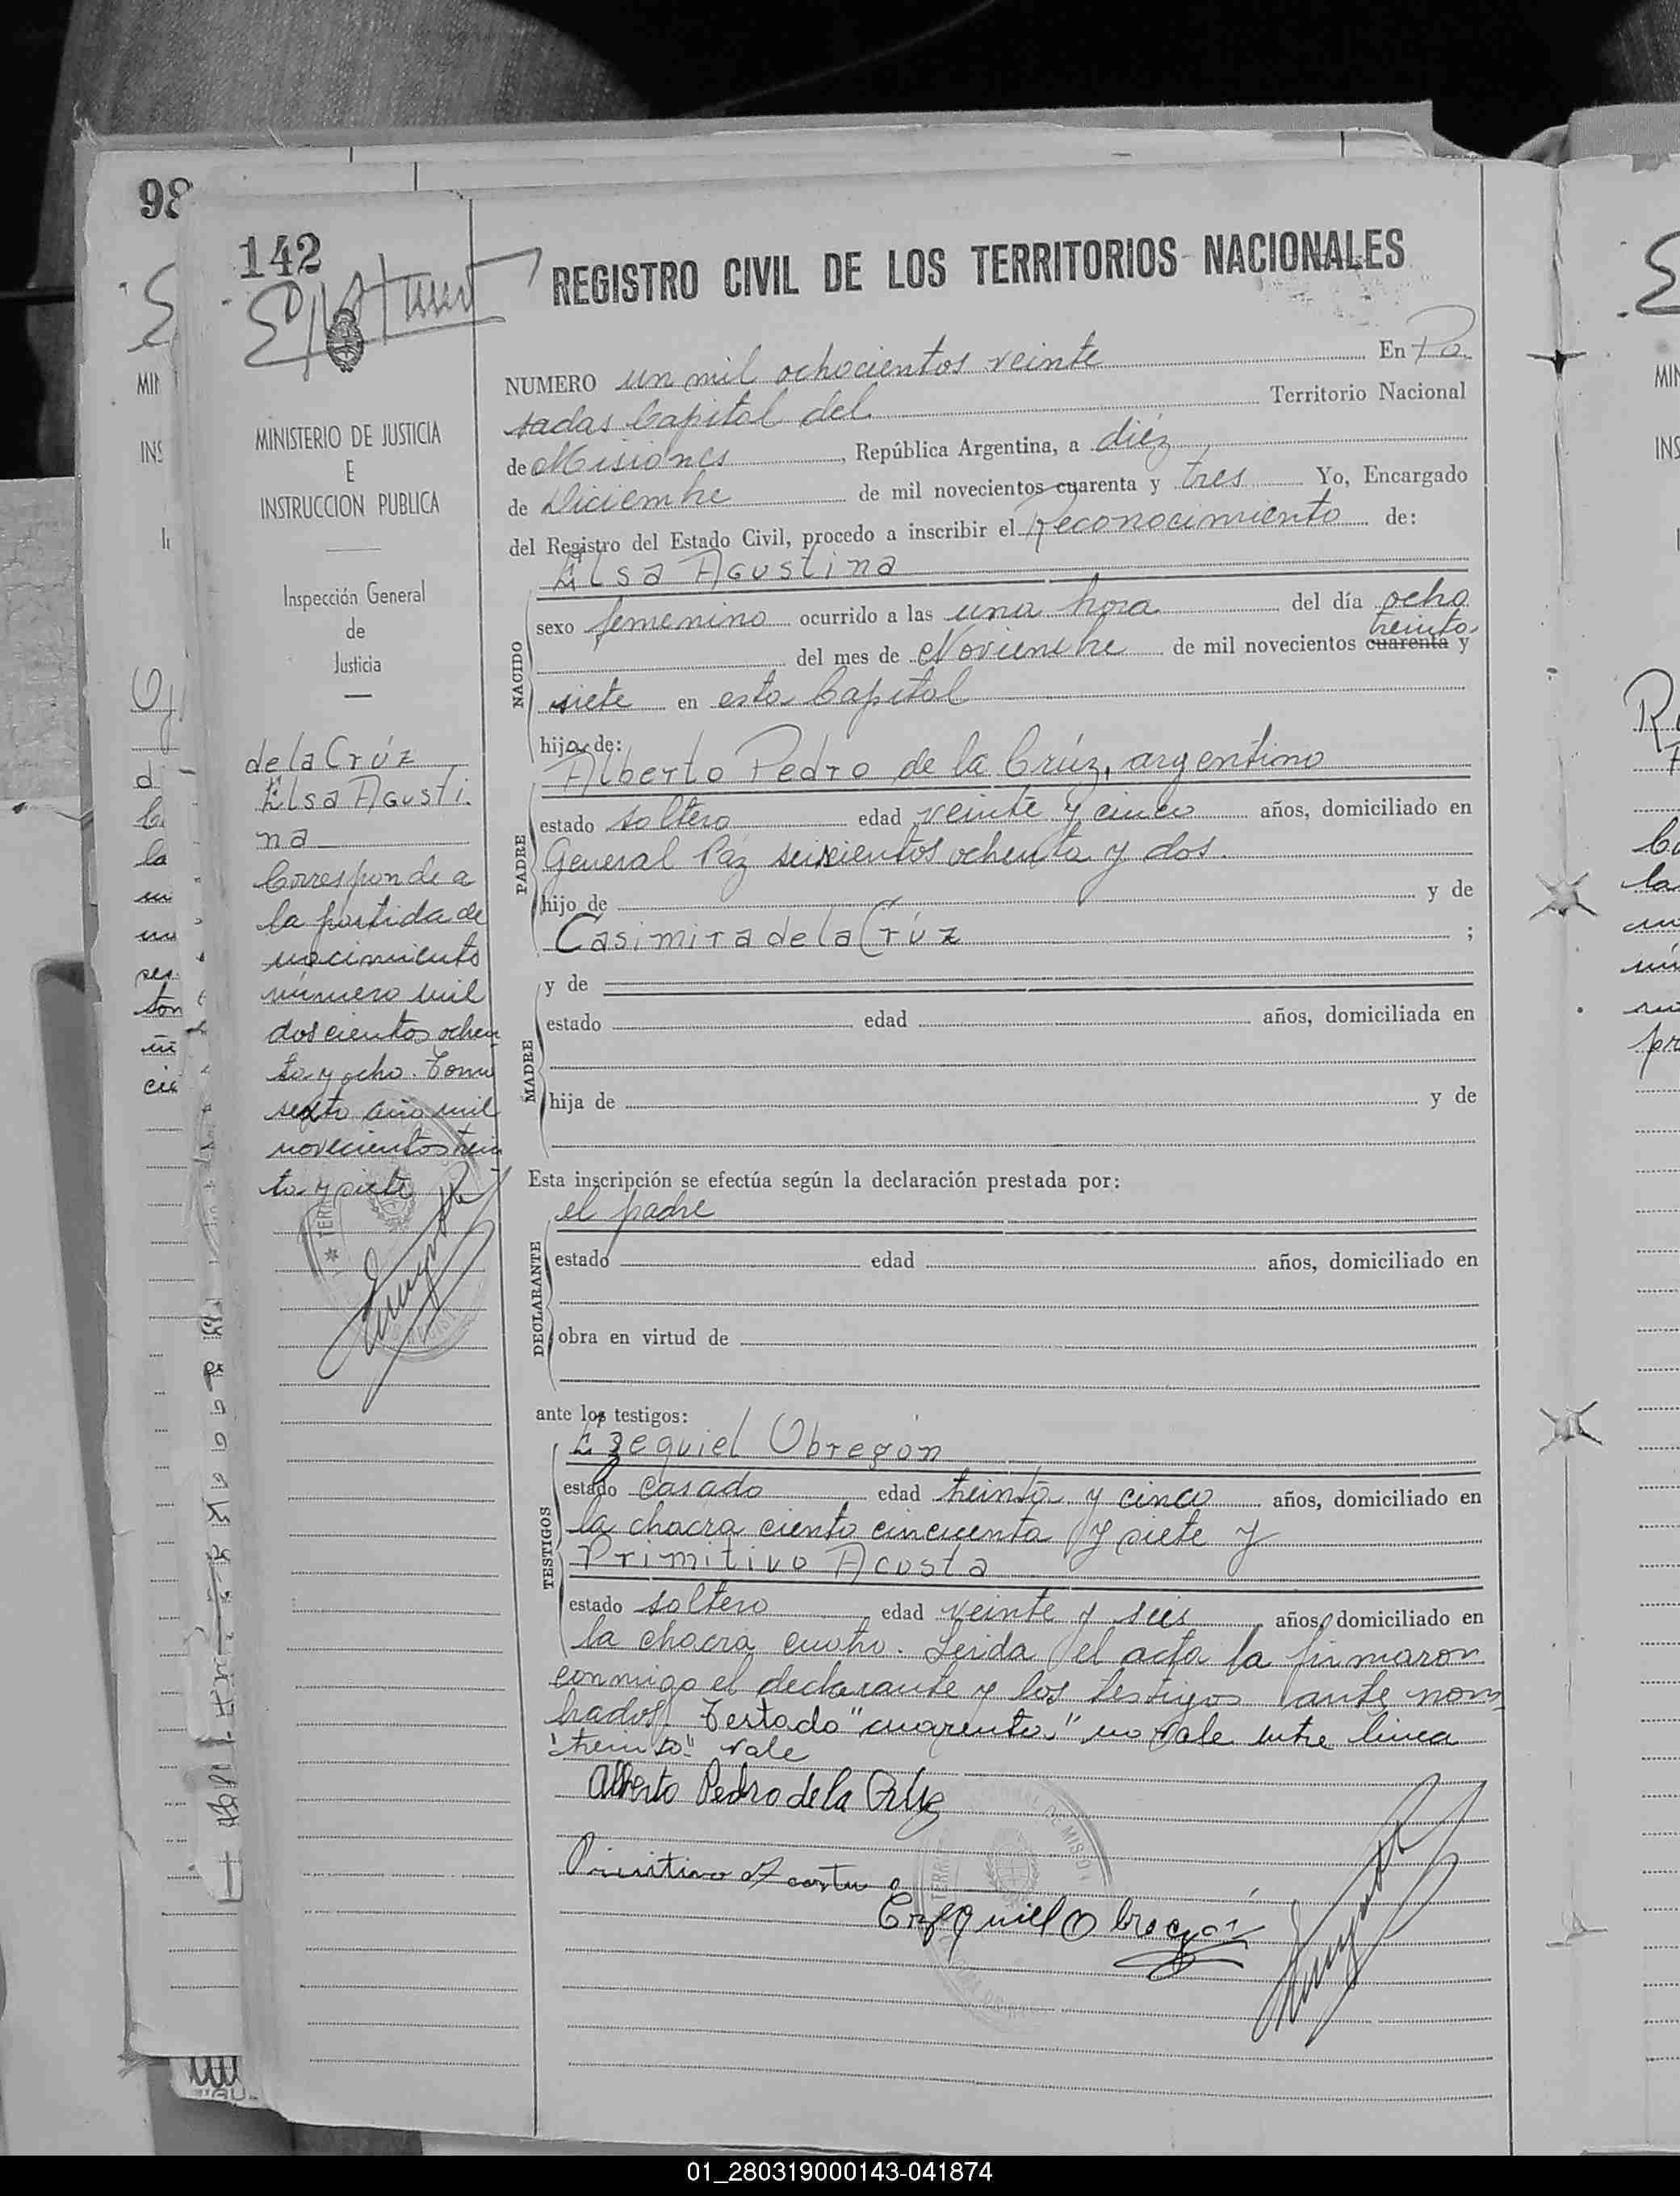 98
142
REGISTRO CIVIL DE LOS TERRITORIOS NACIONALES
MINISTERIO DE JUSTICIA
E
INSTRUCCION PUBLICA
Inspección General
de
Justicia
de la Crúz
Elsa Agusti
na
Corresponde a
la partida de
nacimiento
número mil
doscientos ochen
ta y ocho. Tomo
sexto año mil
novecientos trein
ta y siete
NUMERO un mil ochocientos veinte En Po
sadas Capital del Territorio Nacional
de Misiones, República Argentina, a diéz
de Diciembre de mil novecientos cuarenta y tres Yo, Encargado
del Registro del Estado Civil, procedo a inscribir el Reconocimiento de:
Elsa Agustina
NACIDO
sexo femenino ocurrido a las una hora del día ocho
treinta
del mes de Noviembre de mil novecientos cuarenta y
siete en esta Capital
hija de:
Alberto Pedro de la Crúz, argentino
PADRE
estado soltero edad veinte y cinco años, domiciliado en
General Paz seiscientos ochenta y dos.
hijo de y de
Casimira de la Crúz ;
y de
MADRE
estado edad años, domiciliada en
hija de y de
Esta inscripción se efectúa según la declaración prestada por:
el padre
DECLARANTE
estado edad años, domiciliado en
obra en virtud de
ante los testigos:
Ezequiel Obregón
TESTIGOS
estado casado edad treinta y cinco años, domiciliado en
la chacra ciento cincuenta y siete y
Primitivo Acosta
estado soltero edad veinte y seis años, domiciliado en
la chacra cuatro. Leida el acta la firmaron
conmigo el declarante y los testigos ante nom
brados. Testado "cuarenta" no vale entre linea
"treinta" vale
Alberto Pedro de la Cruz
Primitivo Acosta
Ezequiel Obregon
01_280319000143-041874